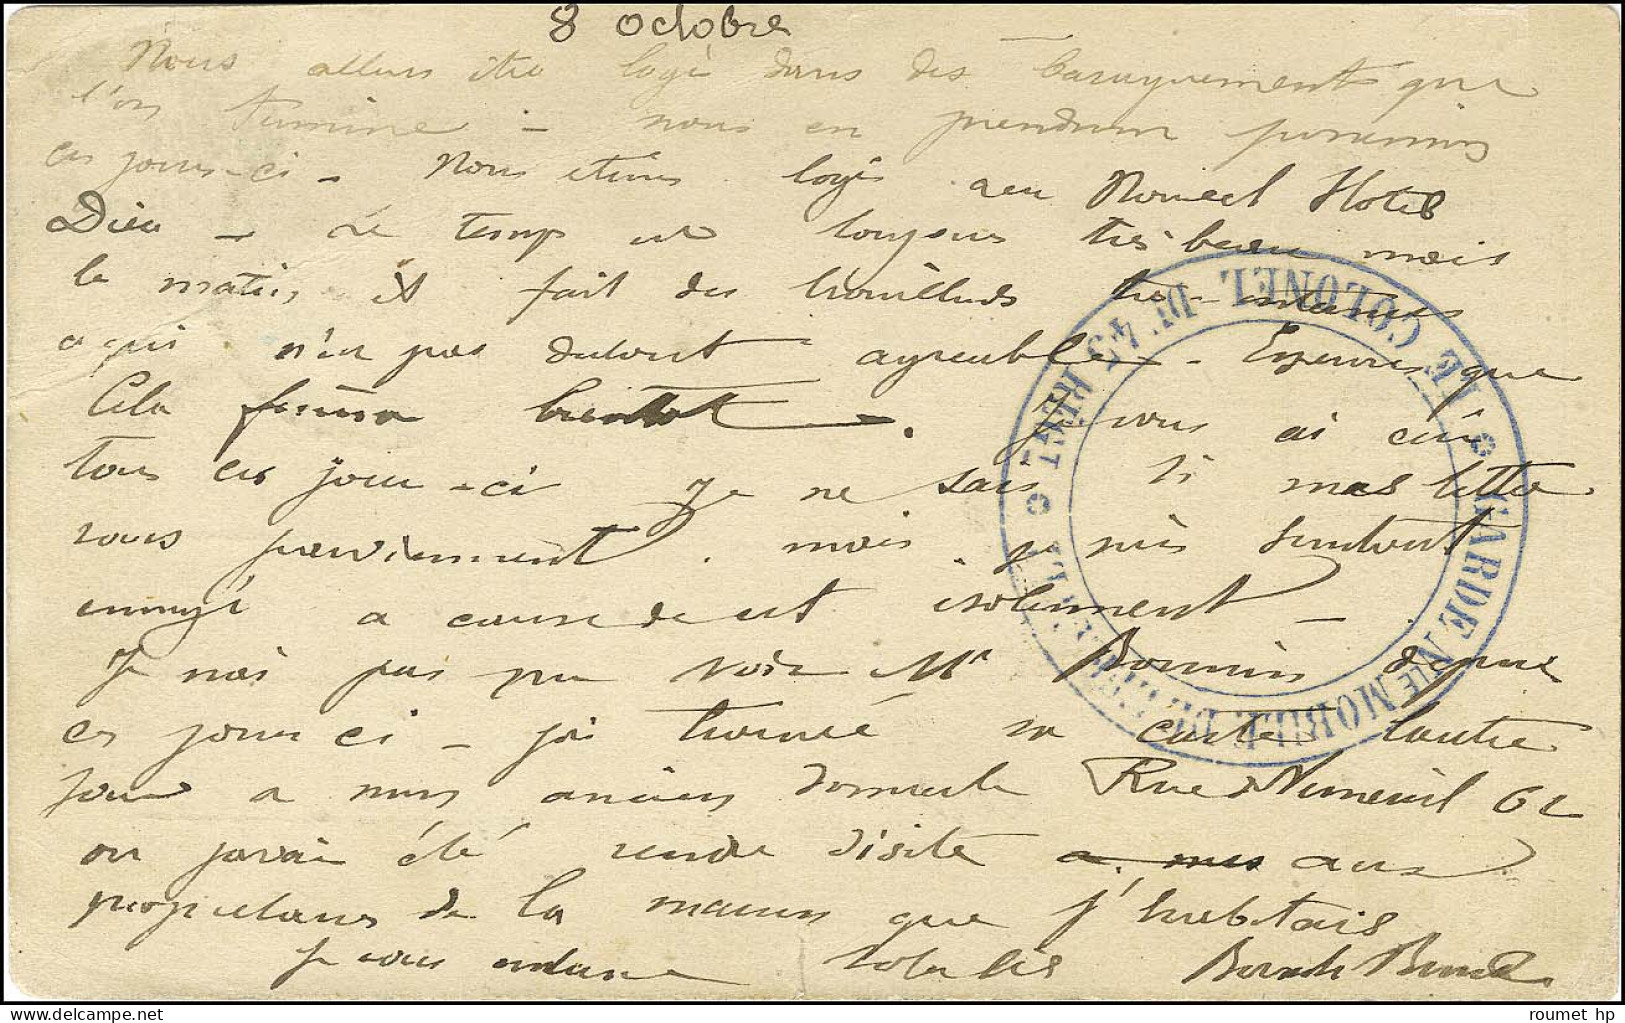 8 octobre
Nous allons être logé dans des baraquement que
l'on termine - nous en prendrons possession
ces jours-ci - Nous étions logés au Nouvel Hotel
Dieu - Le temps est toujours très beau mais
le matin il fait des brouillards très
qui n'est pas du tout agreable - Esperons que
Cela finira bientot - Je vous ai écrit
tous ces jours-ci Je ne sais si mes lettre
vous parviennent. mais je suis surtout
ennuyé a cause de cet isolement -
Je n'ai pas pu voir Mr Bonnin depuis
ces jours ci - j'ai trouvé sa carte l'autre
jour a mon ancien domicile Rue 62
ou j'avais été rendre visite a mes aux
proprietaires de la maison que j'habitais
Je vous embrasse
LE COLONEL DU 45E REGT
GARDE NLE MOBILE
roumet hp